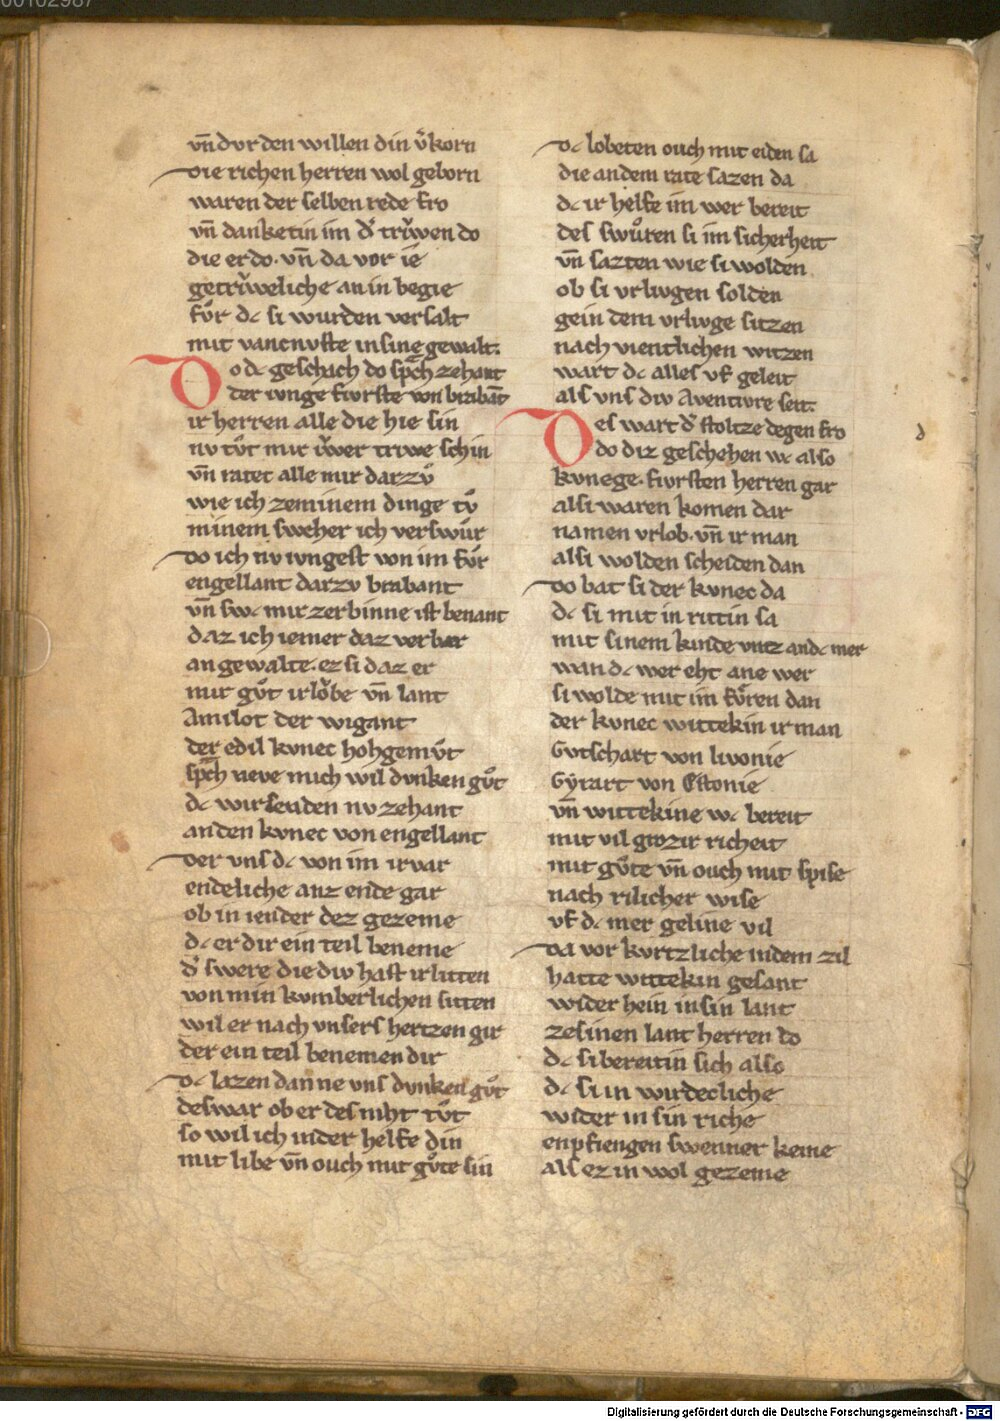 vn̄ dvr den willen din v̾korn
die richen herren wol geborn
waren der selben rede fro
vn̄ danketin im d̾ trv̾wen do
die er do. vn̄ da vor ie
getrv̾weliche an in begie
fv̊r dc si wurden versalt
mit vancnvste in sine gewalt.
Do dc geschach do sp̾ch zehant
der ivnge fvrste von brabāt
ir herren alle die hie sin
nv tv̊t mir v̾wer triwe schin
vn̄ ratet alle mir darzv̊
wie ich ze minem dinge tv̊
minem sweher ich verswůr
do ich nv ivngest von im fv̊r
engellant darzv brabant
vn̄ swc mir zerbinne ist benant
daz ich iemer daz verber
an gewalte. ez si daz er
mir gv̊t irlo̊be vn̄ lant
Amilot der wigant
der edil kvnec hohgemv̊t
sp̾ch neve mich wil dvnken gv̊t
dc wir senden nv zehant
an den kvnec von engellant
der vns dc von im irvar
endeliche anz ende gar
ob in iender dez gezeme
dc er dir ein teil beneme
d̾ swere die dv hast irlitten
von min kvmberlichen sitten
wil er nach vnsers hertzen gir
der ein teil benemen dir
dc lazen danne vns dvnken gv̊t
deswar ob er des niht tv̊t
so wil ich in der helfe din
mit libe vn̄ ouch mit gv̊te sin
dc lobeten ouch mit eiden sa
die an dem rate sazen da
dc ir helfe im wer bereit
des swůren si im sicherheit
vn̄ sazten wie si wolden
ob si vrlivgen solden
gein dem vrlivge sitzen
nach vientlichen witzen
wart dc alles vf geleit
als vns div Aventivre seit.
Des wart d̾ stoltze degen fro
do diz geschehen wc also
kvnege. fvrsten herren gar
alsi waren komen dar
namen vrlob. vn̄ ir man
alsi wolden scheiden dan
do bat si der kvnec da
dc si mit in rittin sa
mit sinem kinde vntz an dc mer
wan dc wer eht ane wer
si wolde mit im fv̊ren dan
der kvnec wittekin ir man
Gotschart von livonie
Gyrart von Estonie
vn̄ wittekine wc bereit
mit vil grozir richeit
mit gv̊te vn̄ ouch mit spise
nach rilicher wise
vf dc mer geline vil
da vor kvrtzliche in dem zil
hatte wittekin gesant
wider hein in sin lant
ze sinen lant herren do
dc si bereitin sich also
dc si in wirdecliche
wider in sin riche
enpfiengen swenner keme
als ez in wol gezeme
Digitalisierung gefördert durch die Deutsche Forschungsgemeinschaft - DFG